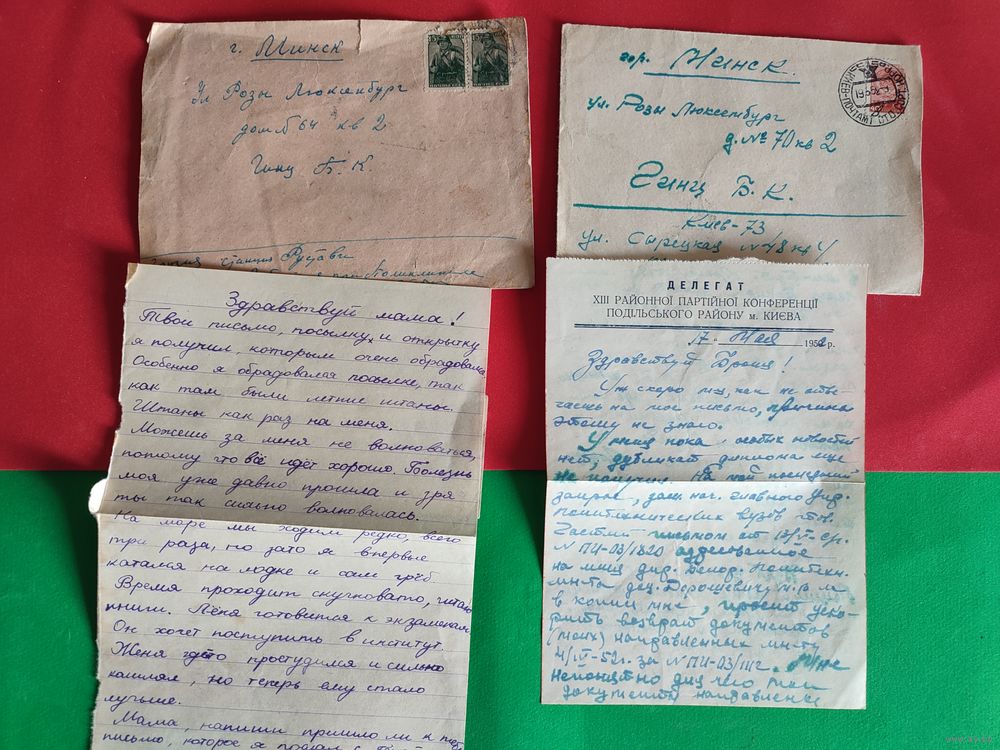 г. Минск
Ул Розы Люксенбург
дом № 64 кв 2
Гинц Б. К.
станция Рустави
гор. Минск.
ул. Розы Люксембург
д. № 70 кв 2
Гинц Б. К.
Киев-73
ул. Сырецкая № 48 кв
Здравствуй мама!
Твои письмо, посылку и открытку
я получил, которым очень обрадовался
Особенно я обрадовался посылке, так
как там были летние штаны.
Штаны как раз на меня.
Можешь за меня не волноваться,
потому что всё идёт хорошо. Болезнь
моя уже давно прошла и зря
ты так сильно волновалась.
На море мы ходим редко, всего
три раза, но зато я впервые
катался на лодке и сам грёб.
Время проходит скучновато, читаю
книги. Лёня готовится к экзаменам
Он хочет поступить в институт.
Женя где-то простудился и сильно
кашлял, но теперь ему стало
лучше.
Мама, напиши пришло ли к тебе
письмо, которое я послал с
ДЕЛЕГАТ
XIII РАЙОННОЇ ПАРТІЙНОЇ КОНФЕРЕНЦІЇ
ПОДІЛЬСЬКОГО РАЙОНУ м. КИЄВА
17 Мая 1952 р.
Здравствуй
Уж скоро м-ц, как не отве-
чаешь на мое письмо, причина
этому не знаю.
У меня пока особых новостей
нет, дубликат диплома еще
не получил. На мой последний
запрос, зам. нач. главного упр.
политехнических вузов тов.
письмом от
№ ПИ-03/1820 адресованное
на имя дир. Белор. Политехн.
ин-та доц. Дорошевичу
в копии мне, просит уско-
рить возврат документов
(моих) направленных ин-ту
4/IV-52г. за № ПИ-03/
непонятно для чего мои
документы направлены